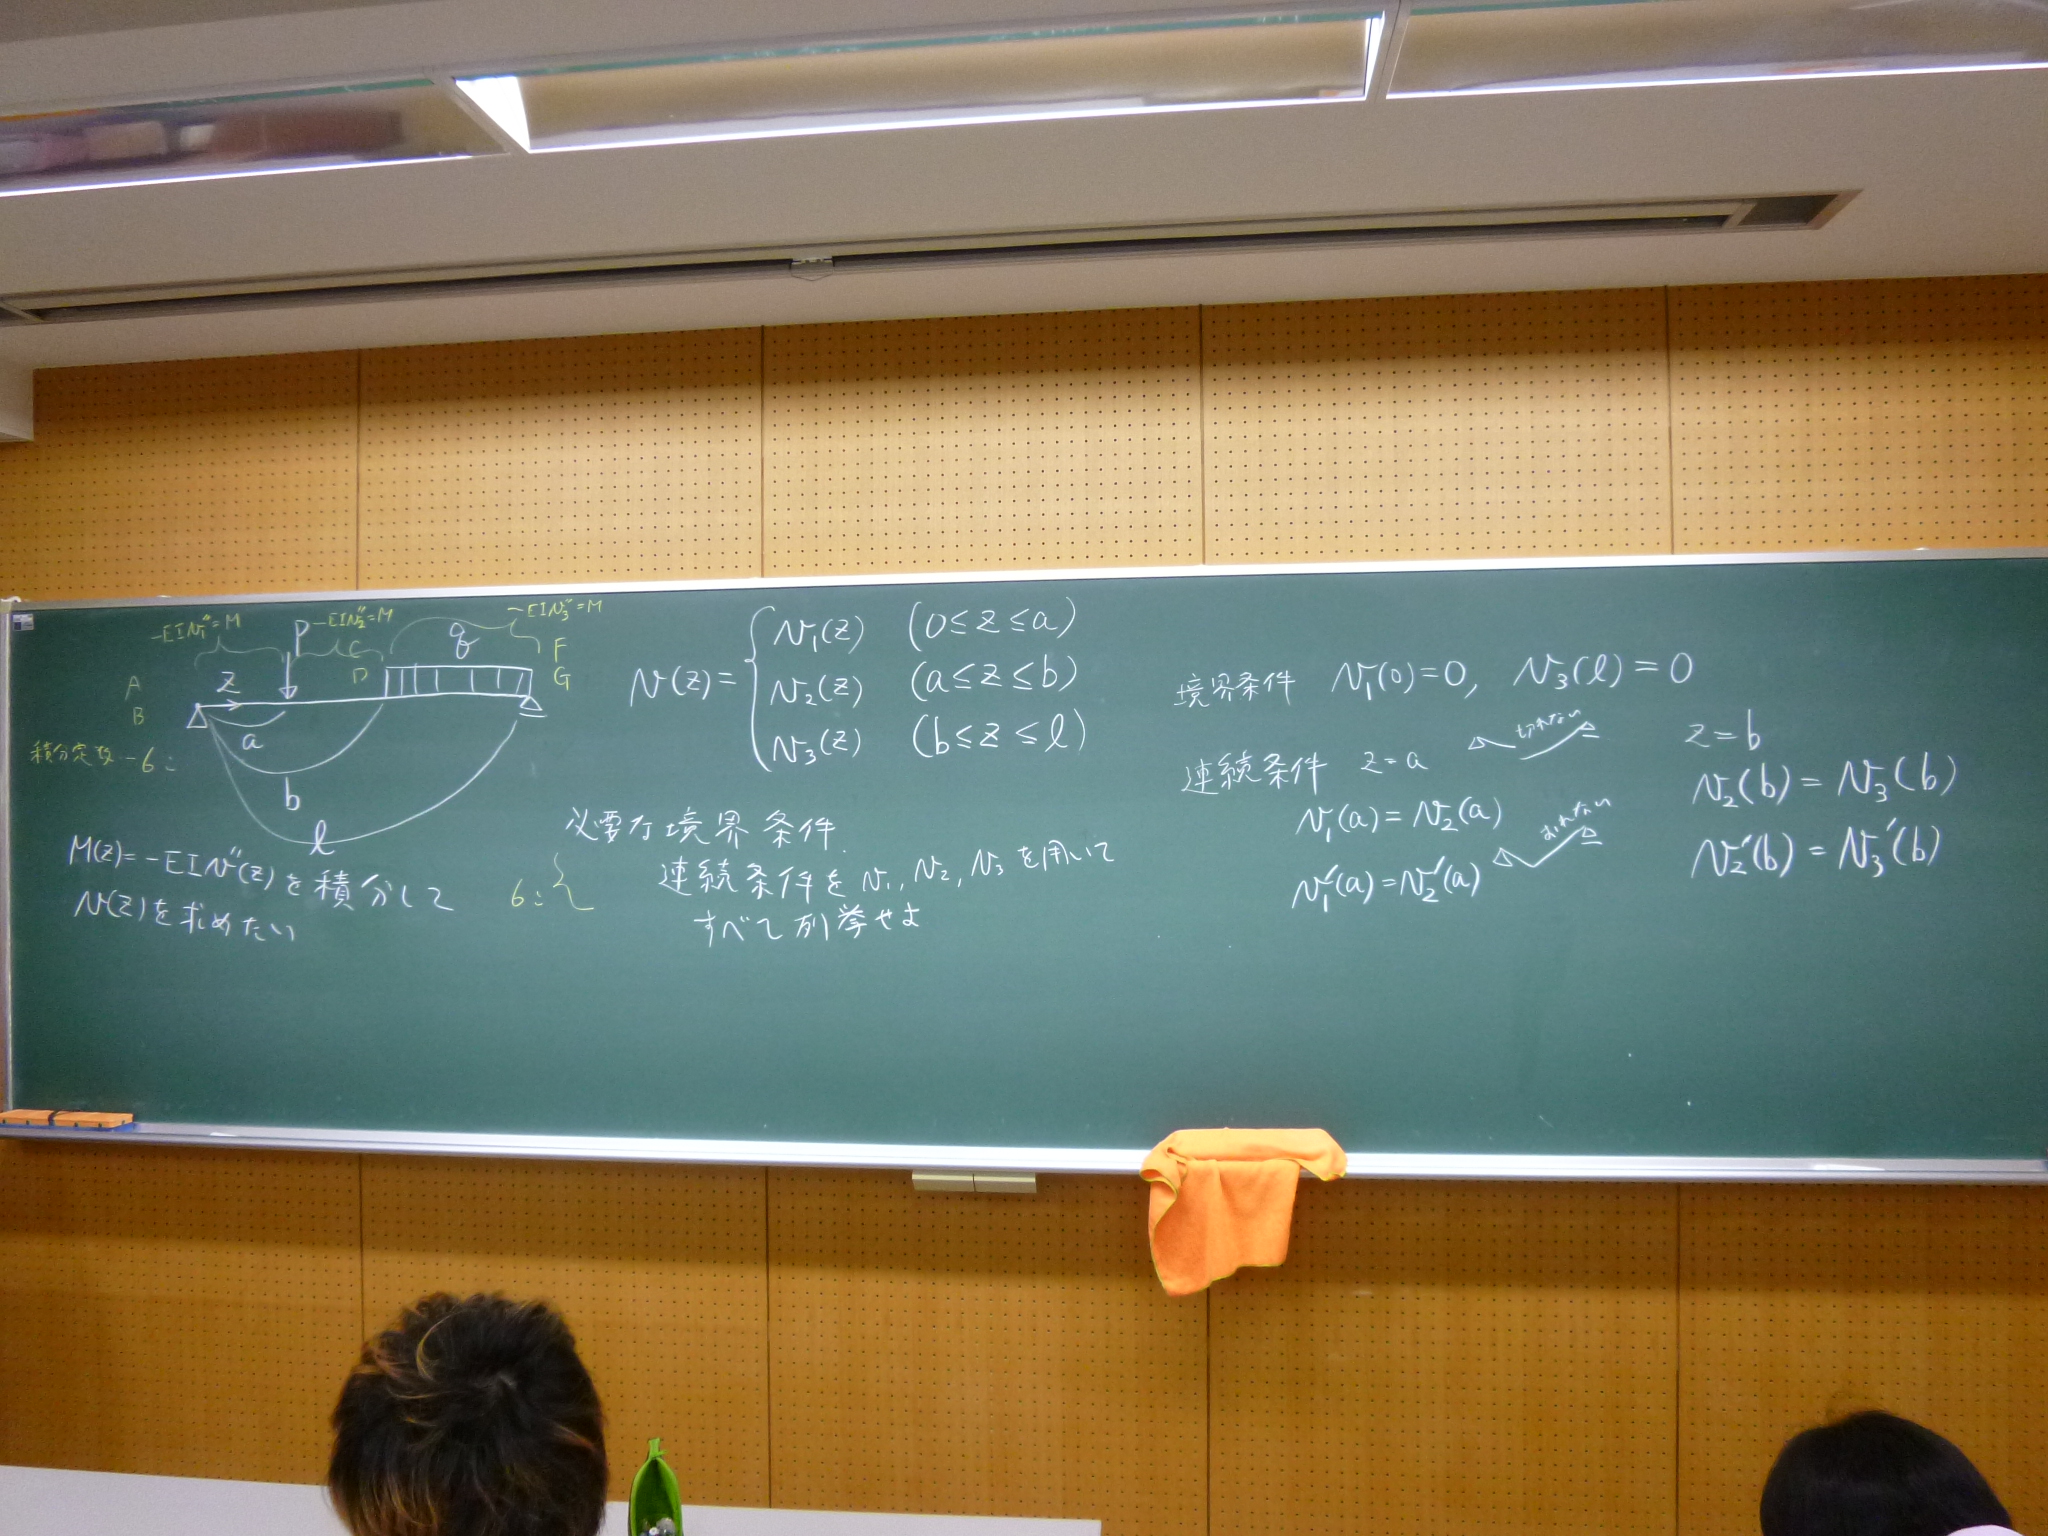 -EIv₁''=M
-EIv₂''=M
-EIv₃''=M
P
q
C
D
F
G
A
B
z
a
b
l
積分定数-6コ
M(z)=-EIv''(z)を積分して
v(z)を求めたい
v(z)= v₁(z) (0≤z≤a)
v₂(z) (a≤z≤b)
v₃(z) (b≤z≤l)
必要な境界条件.
6コ 連続条件を v₁, v₂, v₃ を用いて
すべて列挙せよ
境界条件 v₁(0)=0, v₃(l)=0
連続条件 z=a
切れない
v₁(a)=v₂(a)
おれない
v₁'(a)=v₂'(a)
z=b
v₂(b)=v₃(b)
v₂'(b)=v₃'(b)